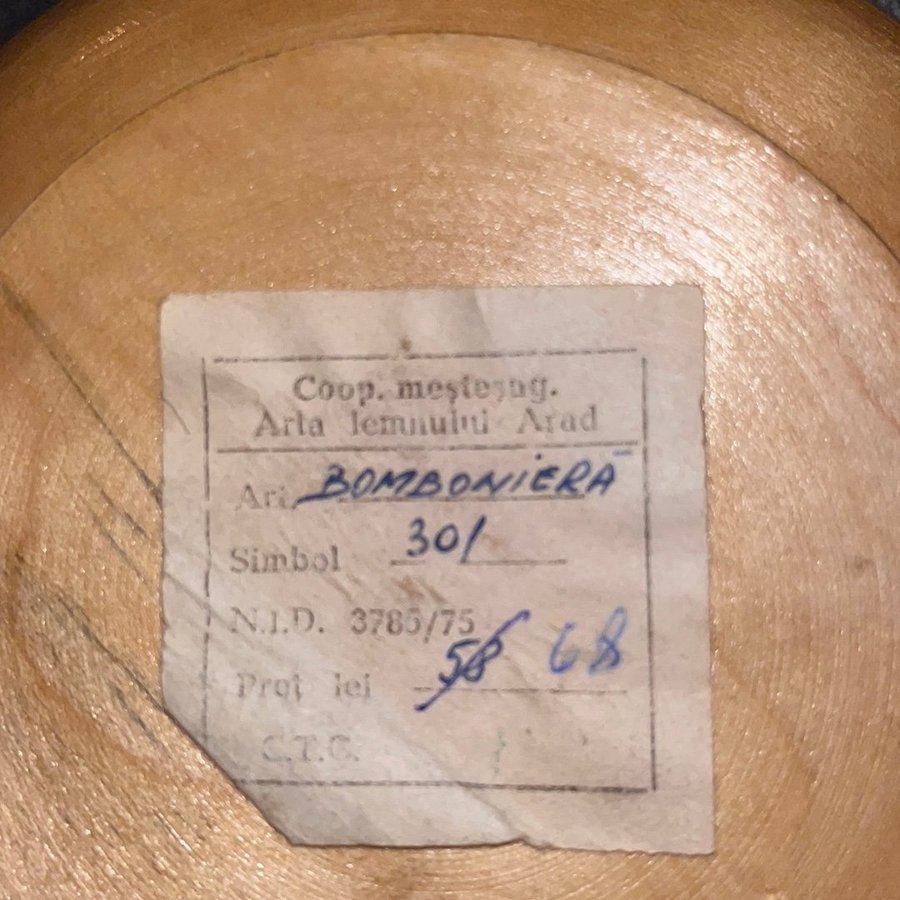 Coop. meșteșug.
Arta lemnului Arad
Art. BOMBONIERĂ
Simbol 301
N.I.D. 3785/75
Preț lei 58 68
C.T.C.